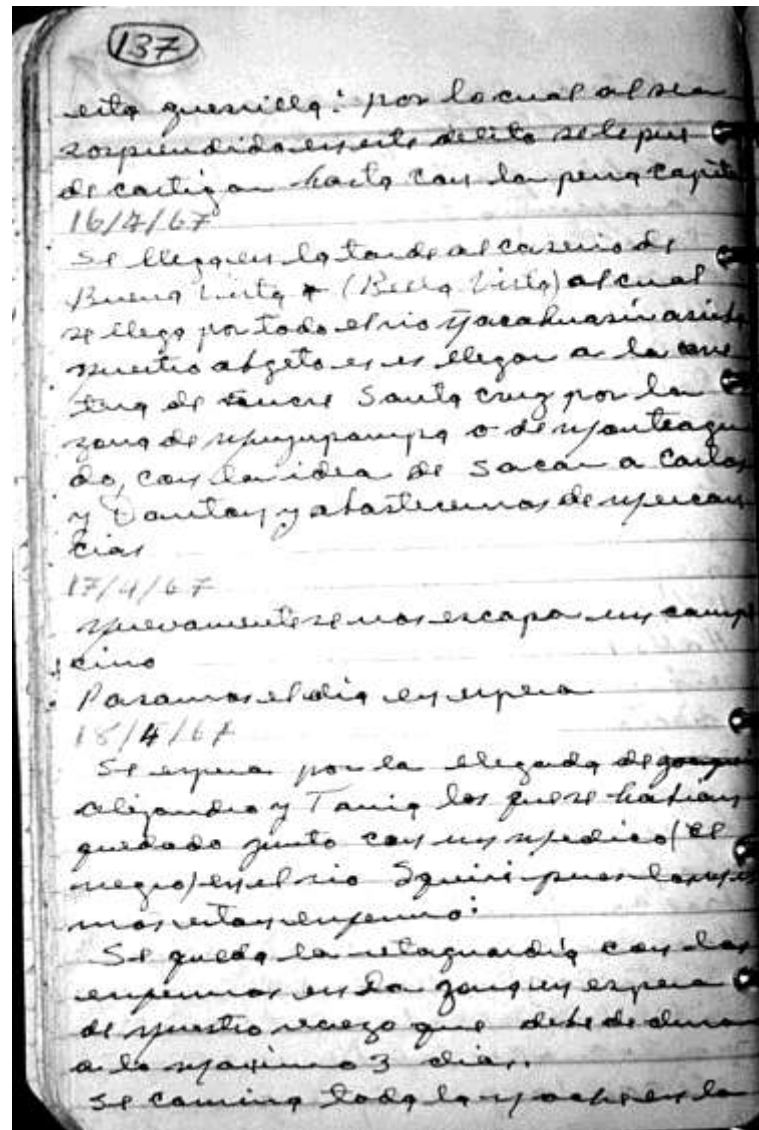 137
esta guerrilla: por lo cual al ser
sorprendido en este delito se le pue
de castigar hasta con la pena capita
16/4/67
Se llega en la tarde al caserio de
Buena Vista (Bella Vista) al cual
se llego por todo el rio Yacahuasin
nuestro abgeto es es llegar a la
de Sucre Santa cruz por la
zona de Muyupampa o de Monteagu
do, con la idea de sacar a Carlos
y Dantan y abastecernos de mercan
cias
17/4/67
Nuevamente se nos escapa un campe
cino
Pasamos el dia en espera
18/4/67
Se espera por la llegada de
Alejandro y Tania los que se habian
quedado junto con un medico (el
negro) en el rio Iquiri pues los
mos estan enfermo:
Se queda la retaguardia con los
enfermos en la zona en espera
de nuestro regezo que debe de durar
a lo maximo 3 dias.
Se camina toda la noche en la